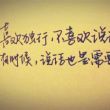 喜欢独行，不喜欢说
有时候，说话也是需要